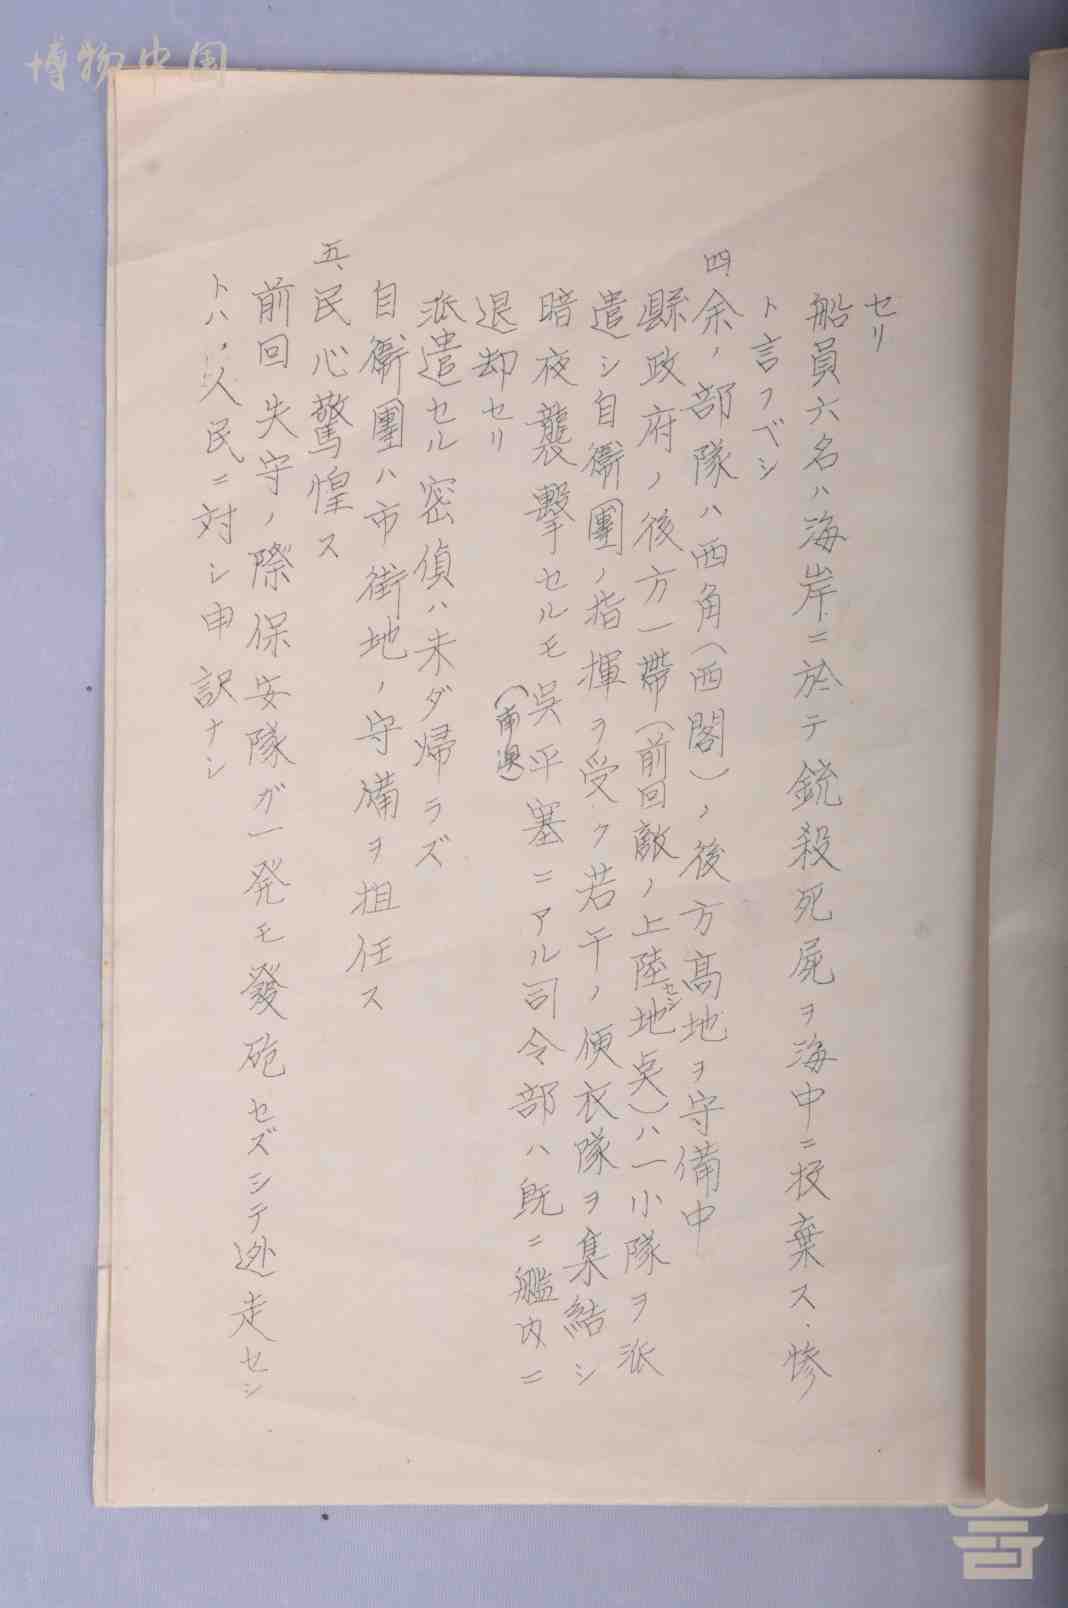 博物中国
セリ
船員六名ハ海岸ニ於テ銃殺死屍ヲ海中ニ投棄ス、惨
ト言フベシ
四、余ノ部隊ハ西角(西閣)ノ後方高地ヲ守備中
縣政府ノ後方一帶(前回敵ノ上陸セシ地点)ハ一小隊ヲ派
遣シ自衛團ノ指揮ヲ受ク若干ノ便衣隊ヲ集結シ
暗夜襲擊セルモ呉平塞ニアル司令部ハ既ニ艦内ニ
(南澳)
退却セリ
派遣セル密偵ハ未ダ帰ラズ
自衛團ハ市街地ノ守備ヲ担任ス
五、民心驚惶ス
前回失守ノ際保安隊ガ一発モ發砲セズシテ逃走セシ
トハ、人民ニ対シ申訳ナシ